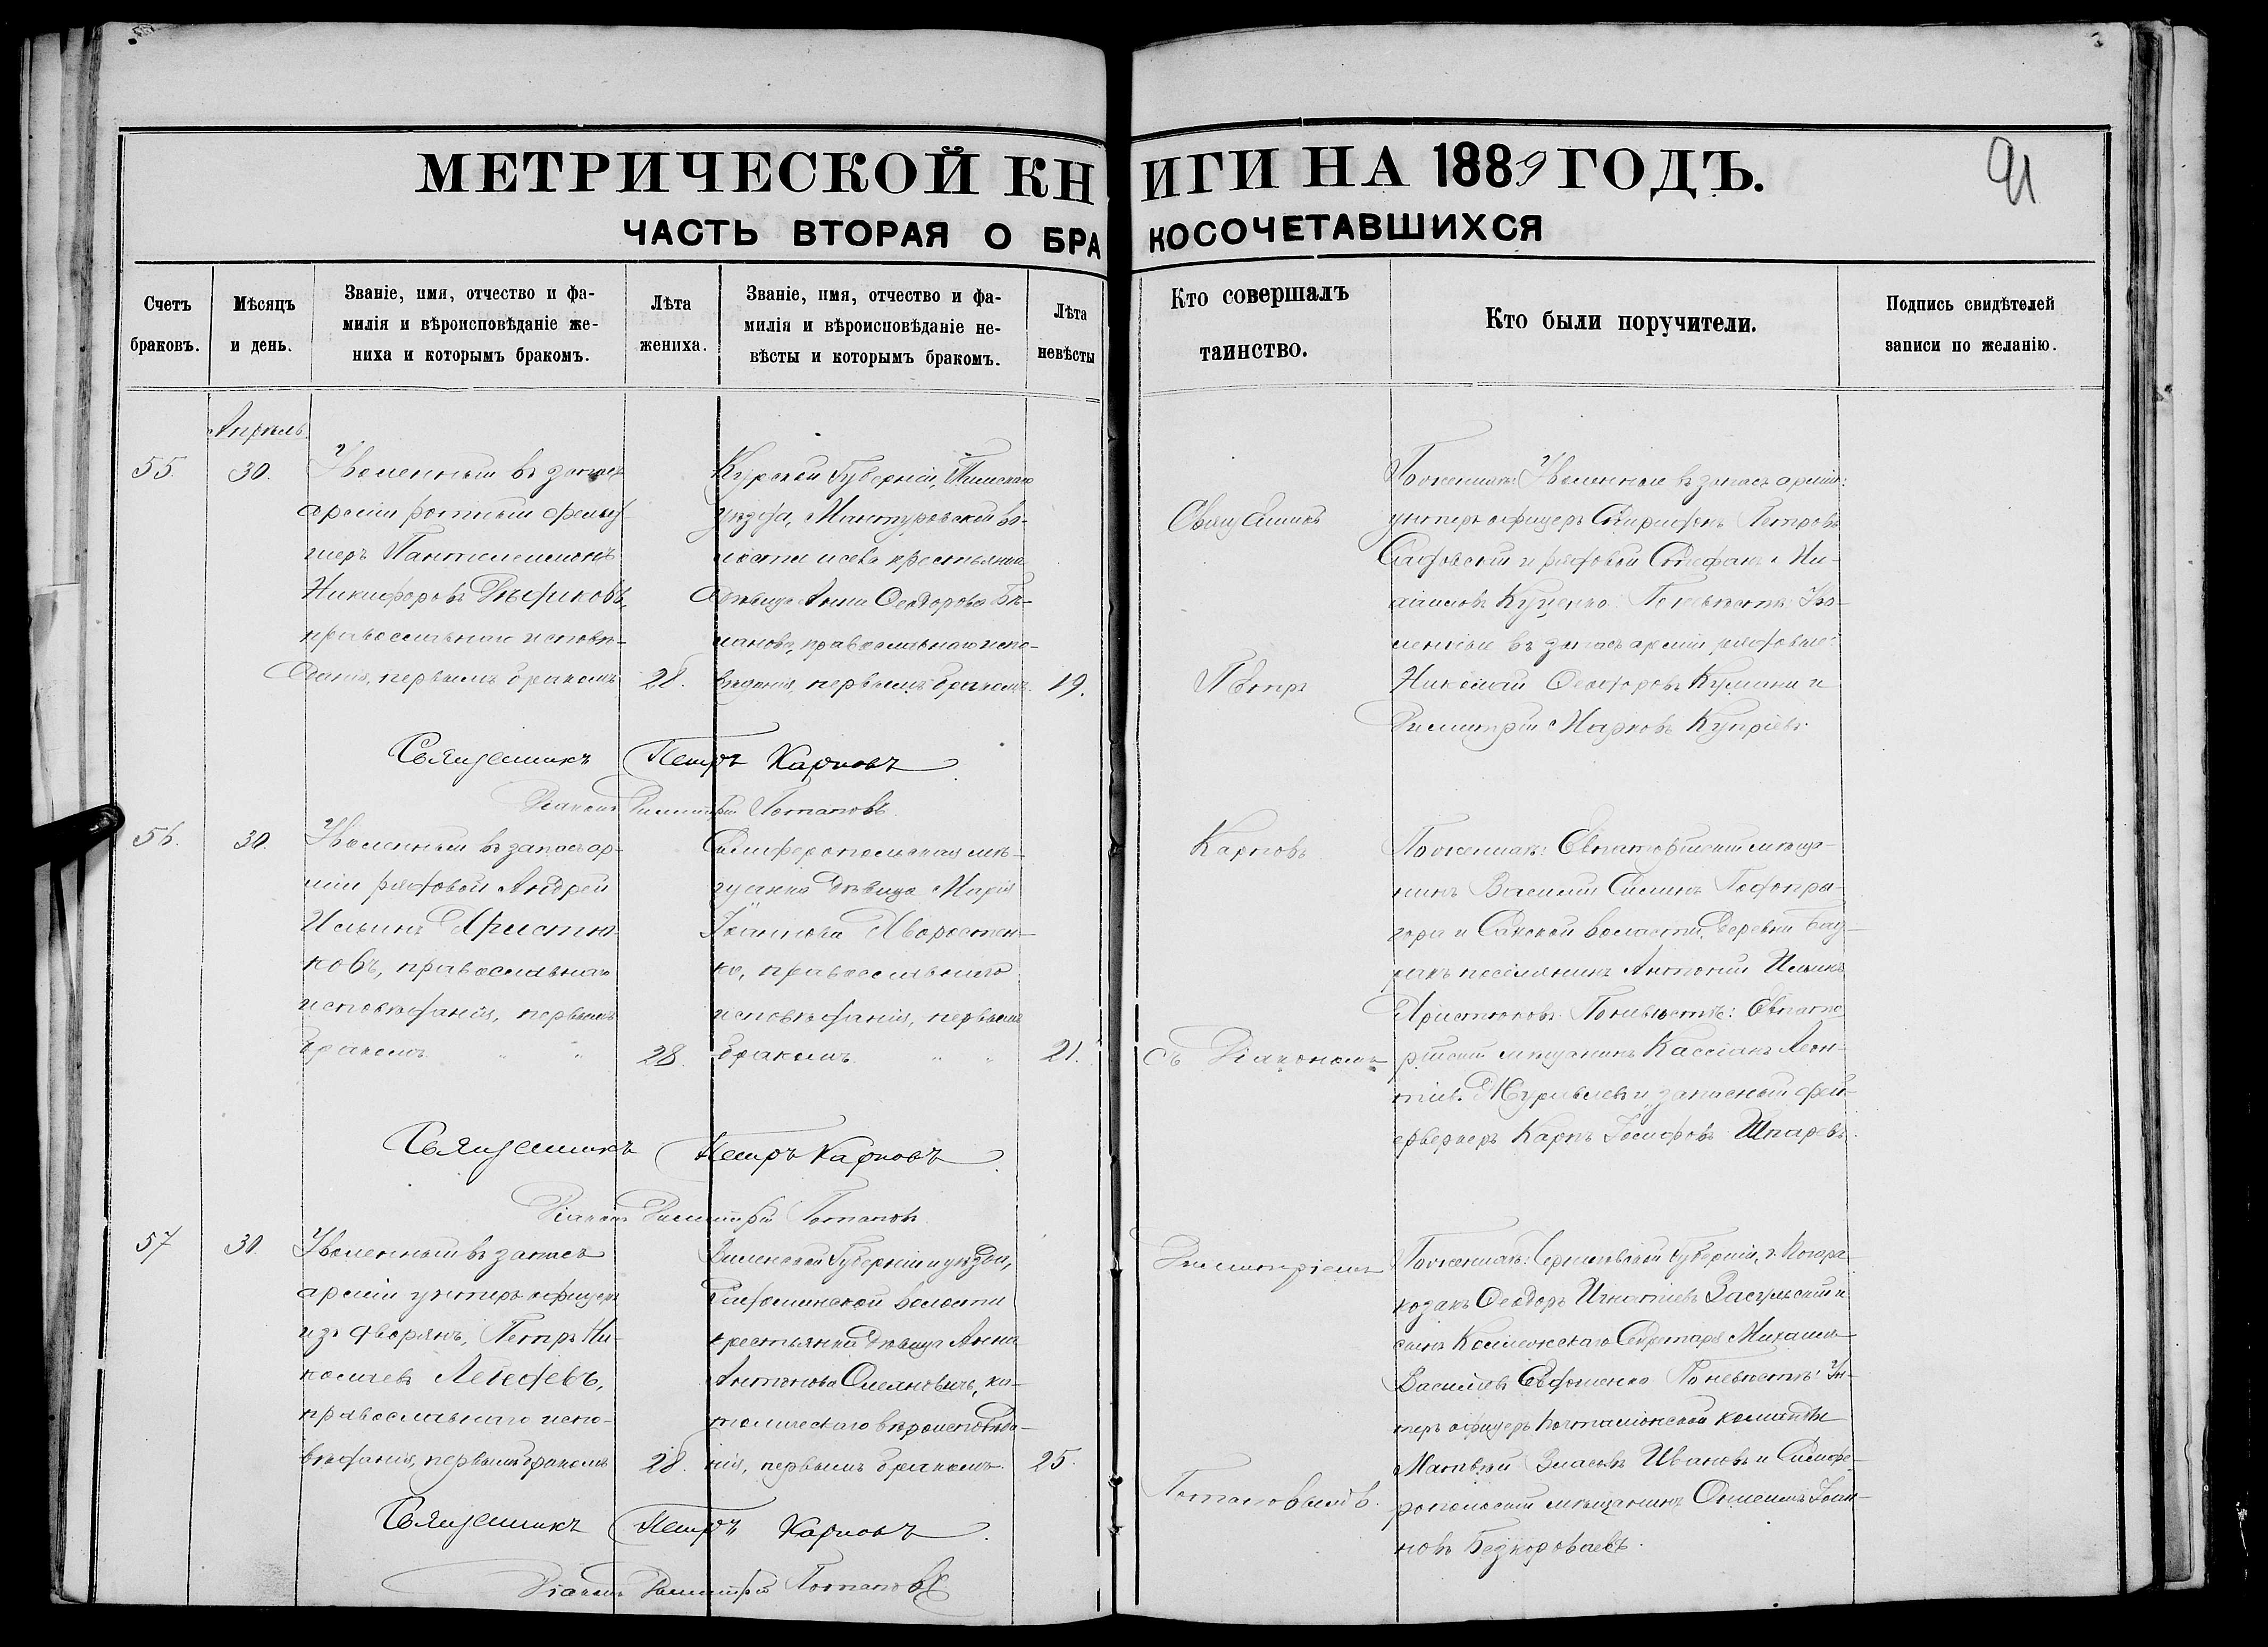 91
МЕТРИЧЕСКОЙ КНИГИ НА 1889 ГОДЪ.
ЧАСТЬ ВТОРАЯ О БРАКОСОЧЕТАВШИХСЯ
Счетъ браковъ.
Мѣсяцъ и день.
Званіе, имя, отчество и фа-
милія и вѣроисповѣданіе же-
ниха и которымъ бракомъ.
Лѣта жениха.
Званіе, имя, отчество и фа-
милія и вѣроисповѣданіе не-
вѣсты и которымъ бракомъ.
Лѣта невѣсты
Кто совершалъ
таинство.
Кто были поручители.
Подпись свидѣтелей
записи по желанію.
Апрѣль.
55. 30.
Уволенный въ запасъ
арміи ротный
шеръ Пантелеимонъ
Никифоровъ
православнаго исповѣ-
данія, первымъ бракомъ
28.
Курской Губерніи, Тимскаго
уѣзда, Мантуровской во-
лости и села крестьянка
дѣвица Анна Ѳеодорова
православнаго испо-
вѣданія, первымъ бракомъ.
19.
Священникъ
Петръ
По женихѣ: Уволенные въ запасъ арміи:
унтеръ офицеръ Спиридонъ Петровъ
и рядовой Стефанъ
Куценко. По невѣстѣ: Уво-
ленные въ запасъ арміи рядовые:
Николай Ѳеодоровъ и
Димитрій Марковъ Купріевъ.
Священникъ Петръ Карповъ
Діаконъ Димитрій Потаповъ.
56. 30.
Уволенный въ запасъ ар-
міи рядовой Андрей
Ильинъ Христю-
ковъ, православнаго
исповѣданія, первымъ
бракомъ " "
28.
Симферопольская мѣ-
щанка дѣвица Марія
Іоаннова Хворостен-
ко, православнаго
исповѣданія, первымъ
бракомъ " "
21.
Карповъ
съ Діакономъ
По женихѣ: Евпаторійскій мѣща-
нинъ Василій Силинъ
и Сакской волости, деревни
поселянинъ Антоній Ильинъ
Христюковъ. По невѣстѣ: Евпато-
рійскій мѣщанинъ Кассіанъ Леон-
тіевъ и запасный фей-
ерверкеръ Карпъ Іосифовъ Шпаревъ.
Священникъ Петръ Карповъ
Діаконъ Димитрій Потаповъ
57 30.
Уволенный въ запасъ
арміи унтеръ офицеръ
изъ дворянъ, Петръ Ни-
колаевъ
православнаго испо-
вѣданія, первымъ бракомъ
28.
Виленской Губерніи и уѣзда,
волости
крестьянка дѣвица Анна
Антонова ка-
толическаго вѣроисповѣда-
нія, первымъ бракомъ.
25.
Димитріемъ
Потаповымъ.
По женихѣ: Черниговской губерніи, г. Погара
козакъ Ѳеодоръ Игнатіевъ и
сынъ Коллежскаго Секретаря Михаилъ
Василіевъ Евдоменко. По невѣстѣ: Ун-
теръ офицеръ почталіонской команды
Матвѣй Власовъ Ивановъ и Симфе-
ропольскій мѣщанинъ Онисимъ Іоан-
новъ Безкороваевъ.
Священникъ Петръ Карповъ
Діаконъ Димитрій Потаповъ